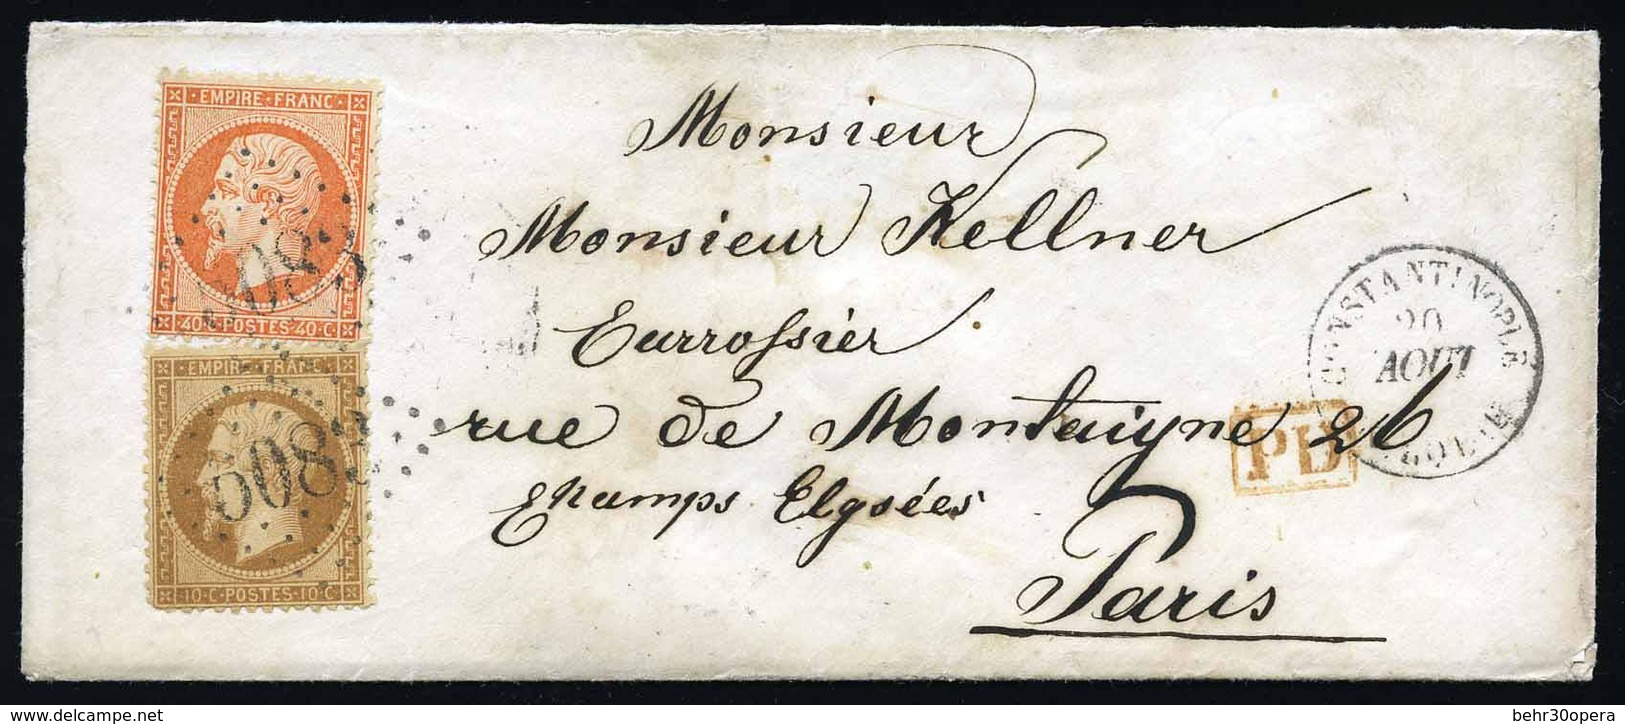 EMPIRE·FRANC·
5083
40·C·POSTES·40·C·
EMPIRE·FRANC·
5083
10·C·POSTES·10·C·
Monsieur
Monsieur Kellner
Carrossier
rue de Montaigne 26
Champs Elysées
Paris
CONSTANTINOPLE
20
AOUT
TURQUIE
PD
delcampe.net
behr30opera